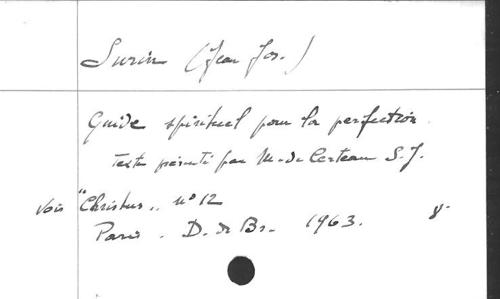 Surin (Jean Jos.)
Guide spirituel pour la perfection.
Texte présenté par M. de Certeau S.J.
voir "Christus" n° 12
Paris. D. de Br. 1963. 8°